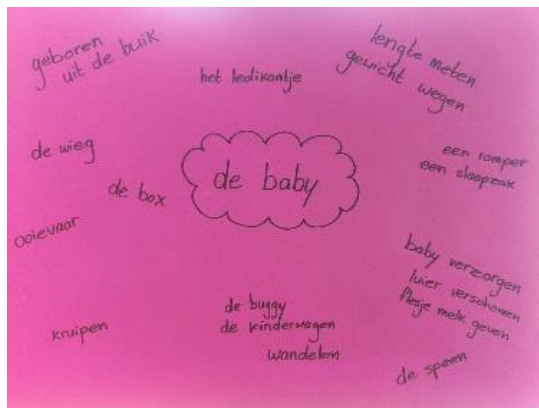 geboren
uit de buik
het ledikantje
lengte meten
gewicht wegen
de wieg
de box
de baby
een romper
een slaapzak
ooievaar
baby verzorgen
luier verschonen
flesje melk geven
kruipen
de buggy
de kinderwagen
wandelen
de speen